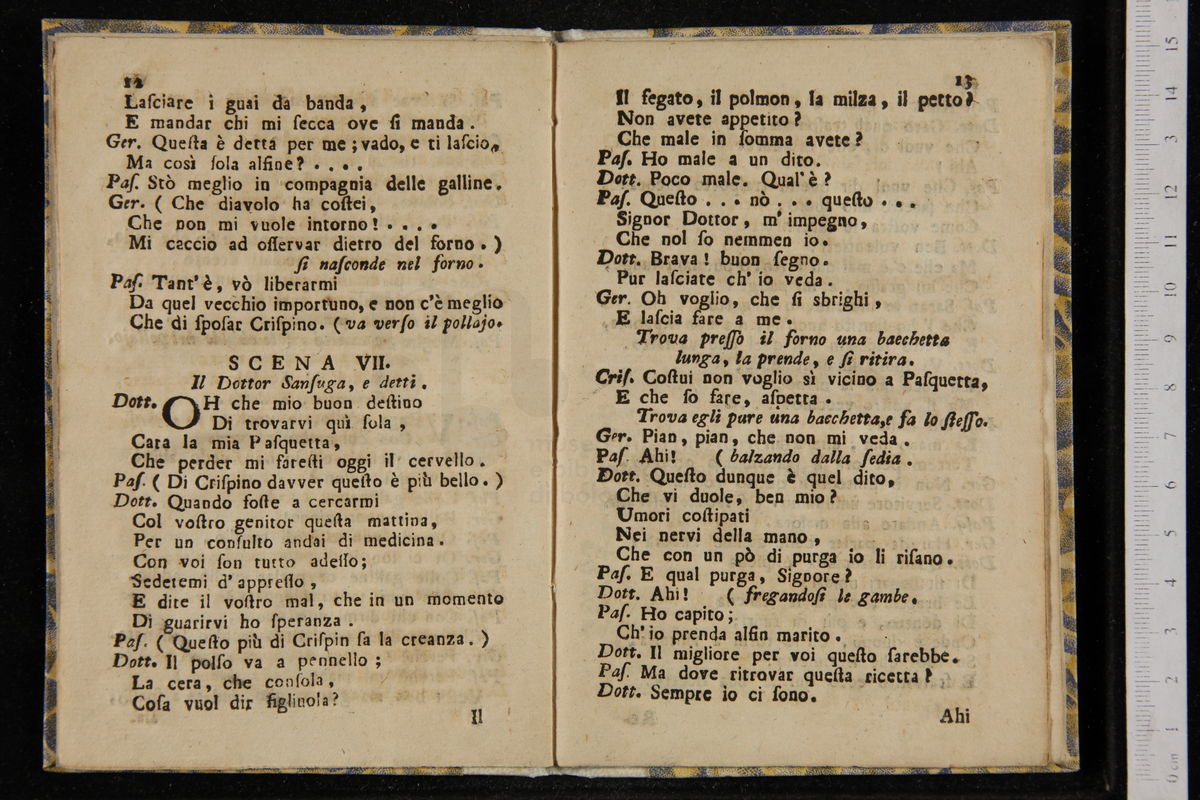 12
Laſciare i guai da banda,
E mandar chi mi ſecca ove ſi manda.
Ger. Queſta è detta per me; vado, e ti laſcio,
Ma così ſola alfine? . . . .
Paſ. Stò meglio in compagnia delle galline.
Ger. ( Che diavolo ha coſtei,
Che non mi vuole intorno! . . . .
Mi caccio ad oſſervar dietro del forno. )
ſi naſconde nel forno.
Paſ. Tant' è, vò liberarmi
Da quel vecchio importuno, e non c'è meglio
Che di ſpoſar Criſpino. ( va verſo il pollajo.
SCENA VII.
Il Dottor Sanſuga, e detti.
Dott. OH che mio buon deſtino
Di trovarvi quì ſola,
Cara la mia Paſquetta,
Che perder mi fareſti oggi il cervello.
Paſ. ( Di Criſpino davver queſto è più bello. )
Dott. Quando foſte a cercarmi
Col voſtro genitor queſta mattina,
Per un conſulto andai di medicina.
Con voi ſon tutto adeſſo;
Sedetemi d' appreſſo,
E dite il voſtro mal, che in un momento
Di guarirvi ho ſperanza.
Paſ. ( Queſto più di Criſpin ſa la creanza. )
Dott. Il polſo va a pennello;
La cera, che conſola,
Coſa vuol dir figliuola?
Il
13
Il fegato, il polmon, la milza, il petto?
Non avete appetito?
Che male in ſomma avete?
Paſ. Ho male a un dito.
Dott. Poco male. Qual' è?
Paſ. Queſto . . . nò . . . queſto . . .
Signor Dottor, m' impegno,
Che nol ſo nemmen io.
Dott. Brava! buon ſegno.
Pur laſciate ch' io veda.
Ger. Oh voglio, che ſi sbrighi,
E laſcia fare a me.
Trova preſſo il forno una bacchetta
lunga, la prende, e ſi ritira.
Criſ. Coſtui non voglio sì vicino a Paſquetta,
E che ſo fare, aſpetta.
Trova egli pure una bacchetta, e fa lo ſteſſo.
Ger. Pian, pian, che non mi veda.
Paſ. Ahi! ( balzando dalla ſedia.
Dott. Queſto dunque è quel dito,
Che vi duole, ben mio?
Umori coſtipati
Nei nervi della mano,
Che con un pò di purga io li riſano.
Paſ. E qual purga, Signore?
Dott. Ahi! ( fregandoſi le gambe.
Paſ. Ho capito;
Ch' io prenda alfin marito.
Dott. Il migliore per voi queſto ſarebbe.
Paſ. Ma dove ritrovar queſta ricetta?
Dott. Sempre io ci ſono.
Ahi
0 cm 1 2 3 4 5 6 7 8 9 10 11 12 13 14 15